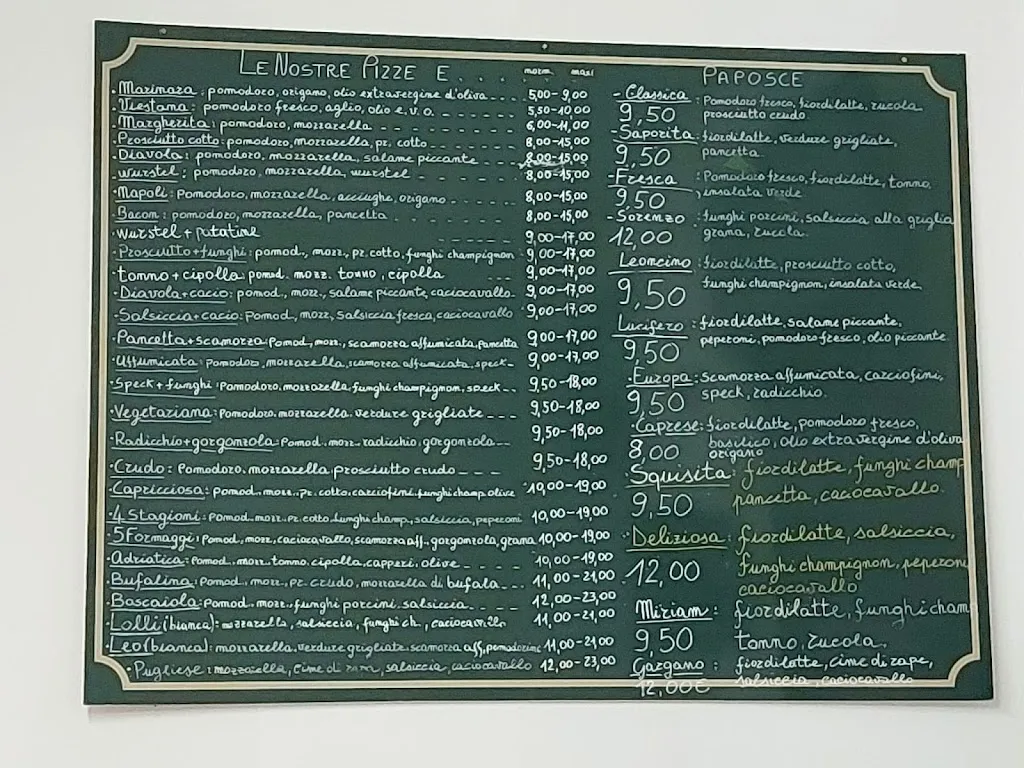 LE NOSTRE PIZZE E . . . . norm. maxi
. Marinara: pomodoro, origano, olio extravergine d'oliva 5,00-9,00
. Viestana: pomodoro fresco, aglio, olio e.v.o. 5,50-10,00
. Margherita: pomodoro, mozzarella 6,00-11,00
. Prosciutto cotto: pomodoro, mozzarella, pr. cotto 8,00-15,00
. Diavola: pomodoro, mozzarella, salame piccante 8,00-15,00
. wurstel: pomodoro, mozzarella, wurstel 8,00-15,00
. Napoli: Pomodoro, mozzarella, acciughe, origano 8,00-15,00
. Bacon: pomodoro, mozzarella, pancetta 8,00-15,00
. wurstel + patatine 9,00-17,00
. Prosciutto+funghi: pomod., mozz., pr. cotto, funghi champignon 9,00-17,00
. tonno + cipolla pomd. mozz. tonno, cipolla 9,00-17,00
. Diavola+cacio: pomod., mozz., salame piccante, caciocavallo 9,00-17,00
. Salsiccia+cacio: Pomod., mozz, salsiccia fresca, caciocavallo 9,00-17,00
. Pancetta+scamorza: Pomod., mozz., scamorza affumicata, pancetta 9,00-17,00
. Affumicata: pomodoro, mozzarella, scamorza affumicata, speck 9,00-17,00
. Speck + funghi: Pomodoro, mozzarella, funghi champignon, speck 9,50-18,00
. Vegetariana: Pomodoro, mozzarella, verdure grigliate 9,50-18,00
. Radicchio+gorgonzola: Pomod., mozz., radicchio, gorgonzola 9,50-18,00
. Crudo: Pomodoro, mozzarella prosciutto crudo 9,50-18,00
. Capricciosa: pomod., mozz., pr. cotto, carciofini, funghi champ. olive 10,00-19,00
. 4 Stagioni: Pomod., mozz. pr. cotto, funghi champ., salsiccia, peperoni 10,00-19,00
. 5 Formaggi: Pomod., mozz, caciocavallo, scamorza aff., gorgonzola, grana 10,00-19,00
. Adriatica: Pomod., mozz. tonno, cipolla, capperi, olive 10,00-19,00
. Bufalina: Pomod., mozz, pr. crudo, mozzarella di bufala 11,00-21,00
. Boscaiola: pomod. mozz., funghi porcini, salsiccia 12,00-23,00
. Lolli (bianca): mozzarella, salsiccia, funghi ch., caciocavallo 11,00-21,00
. Leo (bianca): mozzarella, verdure grigliate, scamorza aff, pomodorini 11,00-21,00
. Pugliese: mozzarella, cime di rapa, salsiccia, caciocavallo 12,00-23,00
PAPOSCE
- Classica: Pomodoro fresco, fiordilatte, rucola
9,50 prosciutto crudo
- Saporita: fiordilatte, verdure grigliate,
9,50 pancetta
- Fresca: Pomodoro fresco, fiordilatte, tonno,
9,50 insalata verde
- Sorenzo: funghi porcini, salsiccia alla griglia
12,00 grana, rucola.
Leoncino: fiordilatte, prosciutto cotto,
9,50 funghi champignon, insalata verde
Lucifero: fiordilatte, salame piccante,
9,50 peperoni, pomodoro fresco, olio piccante
. Europa: Scamorza affumicata, carciofini,
9,50 speck, radicchio.
. Caprese: fiordilatte, pomodoro fresco,
8,00 basilico, olio extravergine d'oliva
origano
Squisita: fiordilatte, funghi champ
9,50 pancetta, caciocavallo.
. Deliziosa: fiordilatte, salsiccia,
12,00 funghi champignon, peperoni
caciocavallo
Miriam: fiordilatte, funghi cham
9,50 tonno, rucola.
Gargano: fiordilatte, cime di rape,
12,00€ salsiccia, caciocavallo